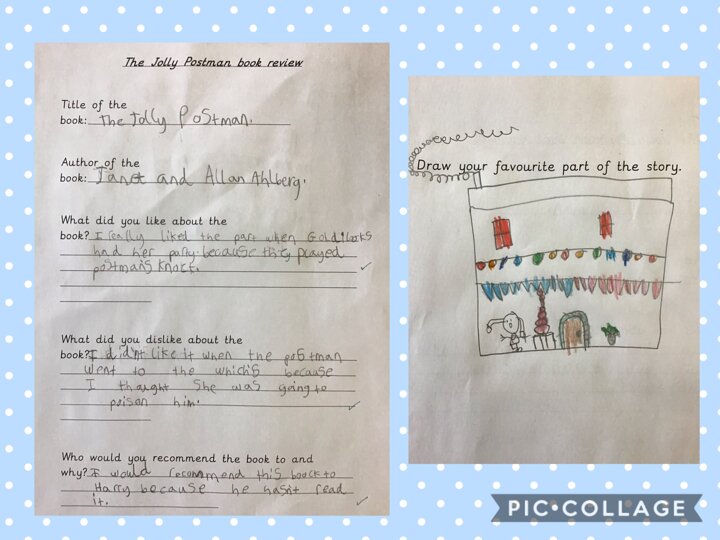 The Jolly Postman book review
Title of the
book: The Jolly Postman.
Author of the
book: Janet and Allan Ahlberg.
What did you like about the
book? I really liked the part when Goldilocks
had her party because they played
postman's knock.
What did you dislike about the
book? I didn't like it when the postman
went to the which's because
I thought she was going to
poison him.
Who would you recommend the book to and
why? I would recommend this boock to
Harry because he hasn't read
it.
Draw your favourite part of the story.
PIC•COLLAGE